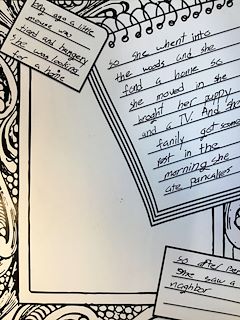 long ago a little
mouse was
tierd and hungery
she was looking
for a home
so she whent into
the woods and she
fond a home so
she moved in she
broght her puppy
and a TV. And she
fanily got some
rest in the
morning she
ate pancakes
so after
she saw a
neighbor